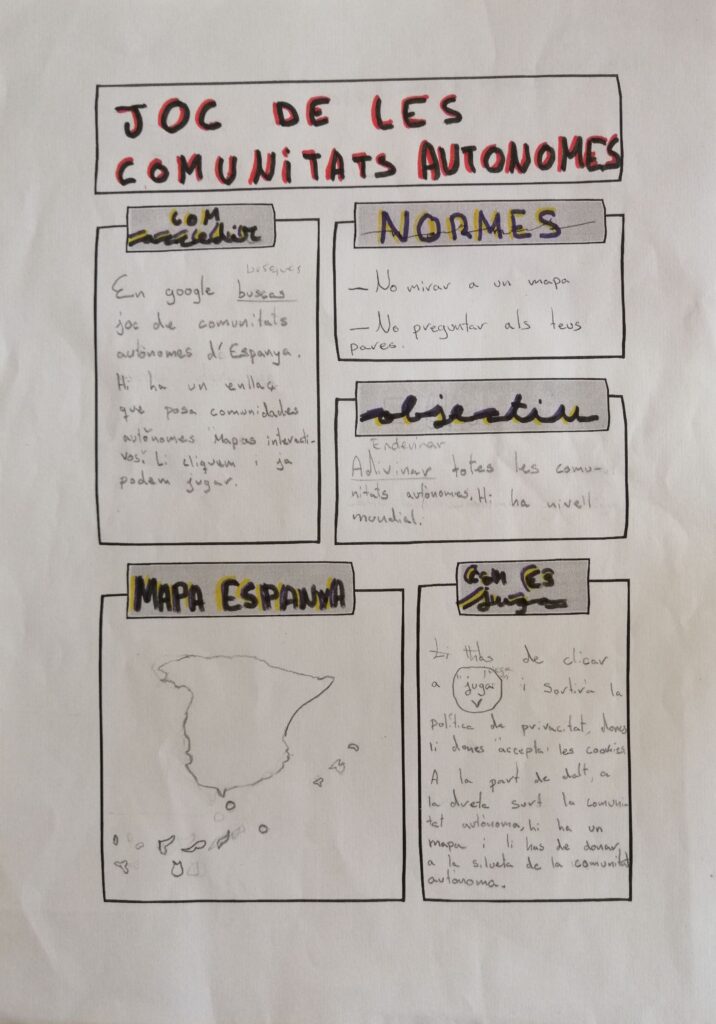 JOC DE LES
COMUNITATS AUTONOMES
COM
accedir
busques
En google buscas
joc de comunitats
autònomes d'Espanya.
Hi ha un enllaç
que posa comunidades
autònomes "Mapas interacti-
vos". Li cliquem i ja
podem jugar.
NORMES
- No mirar a un mapa
- No preguntar als teus
pares.
objectiu
Endevinar
Adivinar totes les comu-
nitats autònomes. Hi ha nivell
mundial.
MAPA ESPANYA
COM ES
juga
Li has de clicar
a "juga" i sortirà la
política de privacitat, dones
li dones "accepta" les cookies
A la part de dalt, a
la dreta surt la comuni-
tat autònoma, hi ha un
mapa i li has de donar,
a la silueta de la comunitat
autònoma.